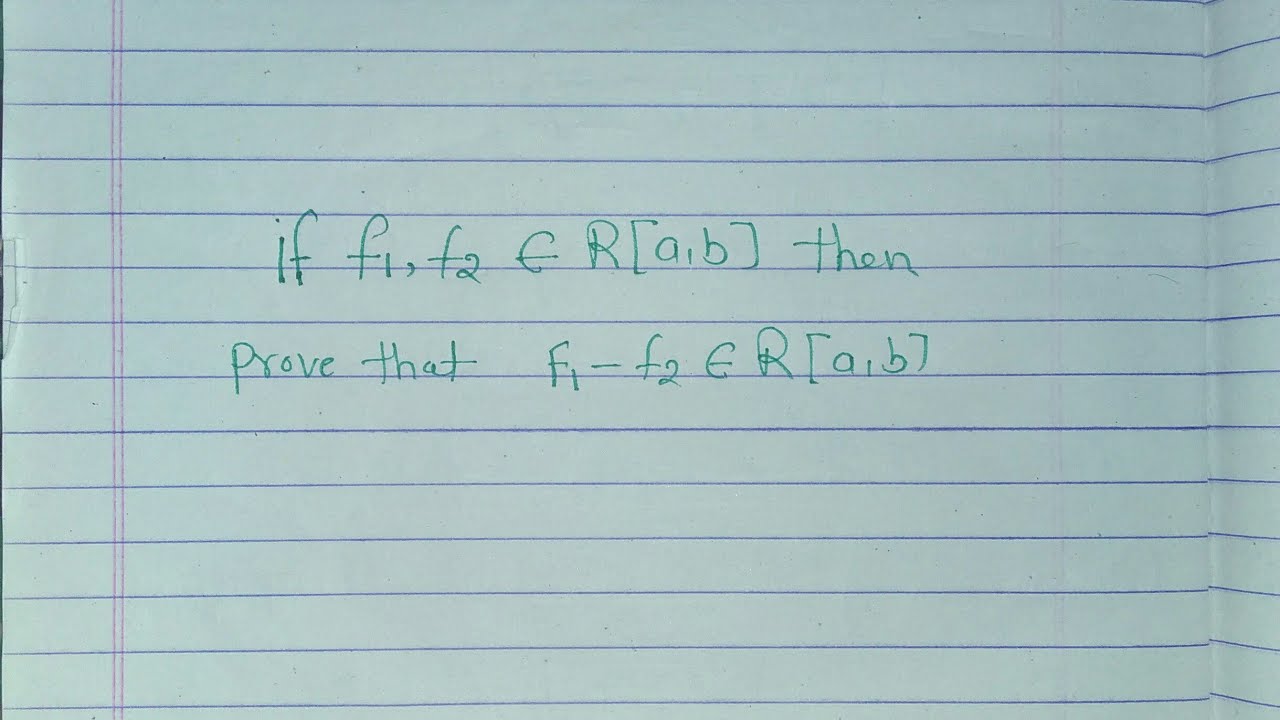 if f₁, f₂ ∈ R[a,b] then
prove that f₁ - f₂ ∈ R[a,b]